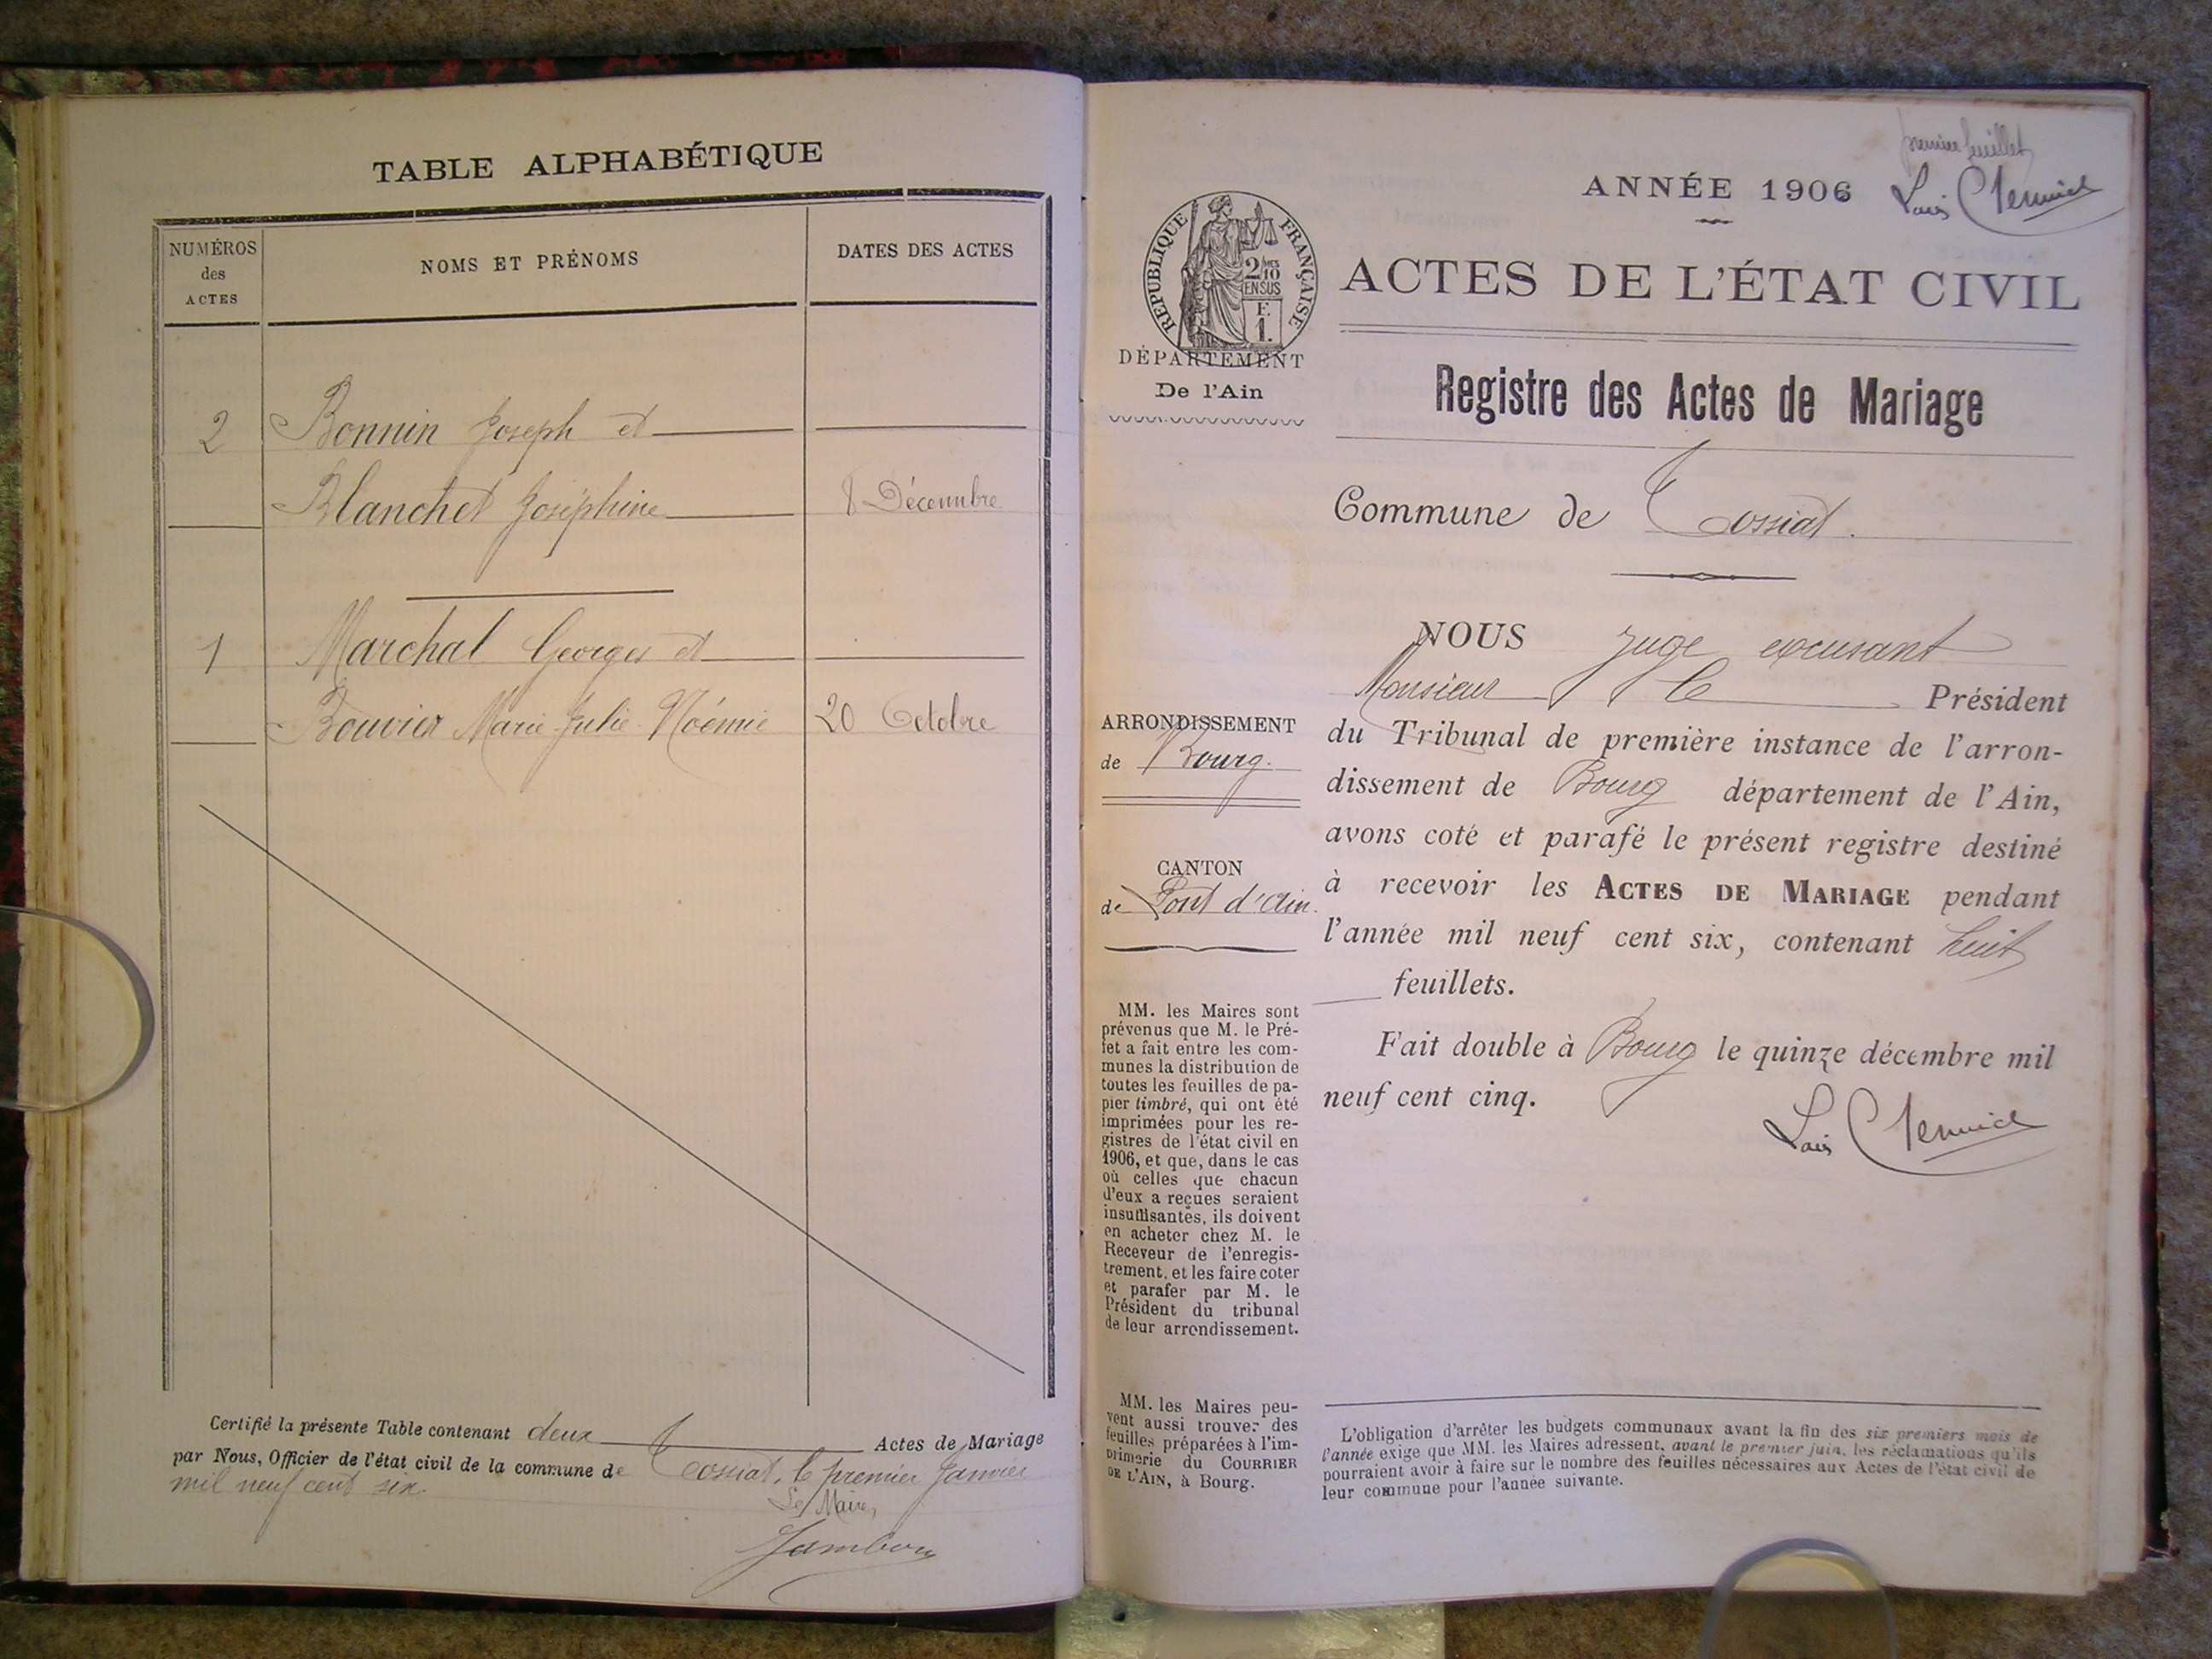 TABLE ALPHABÉTIQUE
NUMÉROS
des
ACTES
NOMS ET PRÉNOMS
DATES DES ACTES
2 Bonnin Joseph et
Blanchet Joséphine 8 Décembre
1 Marchal Georges et
Bouvier Marie Julie Noémie 20 Octobre
Certifié la présente Table contenant deux Actes de Mariage
par Nous, Officier de l'état civil de la commune de Tossiat, le premier Janvier
mil neuf cent six.
Le Maire,
premier feuillet
ANNÉE 1906
RÉPUBLIQUE FRANÇAISE
2/10MES
EN SUS
F.
1.
DÉPARTEMENT
De l'Ain
ACTES DE L'ÉTAT CIVIL
Registre des Actes de Mariage
Commune de Tossiat.
NOUS Juge excusant
Monsieur le Président
du Tribunal de première instance de l'arron-
dissement de Bourg département de l'Ain,
avons coté et parafé le présent registre destiné
à recevoir les ACTES DE MARIAGE pendant
l'année mil neuf cent six, contenant huit
feuillets.
Fait double à Bourg le quinze décembre mil
neuf cent cinq.
ARRONDISSEMENT
de Bourg.
CANTON
de Pont d'Ain.
MM. les Maires sont
prévenus que M. le Pré-
fet a fait entre les com-
munes la distribution de
toutes les feuilles de pa-
pier timbré, qui ont été
imprimées pour les re-
gistres de l'état civil en
1906, et que, dans le cas
où celles que chacun
d'eux a reçues seraient
insuffisantes, ils doivent
en acheter chez M. le
Receveur de l'enregis-
trement, et les faire coter
et parafer par M. le
Président du tribunal
de leur arrondissement.
MM. les Maires peu-
vent aussi trouver des
feuilles préparées à l'im-
primerie du COURRIER
DE L'AIN, à Bourg.
L'obligation d'arrêter les budgets communaux avant la fin des six premiers mois de
l'année exige que MM. les Maires adressent, avant le premier juin, les réclamations qu'ils
pourraient avoir à faire sur le nombre des feuilles nécessaires aux Actes de l'état civil de
leur commune pour l'année suivante.